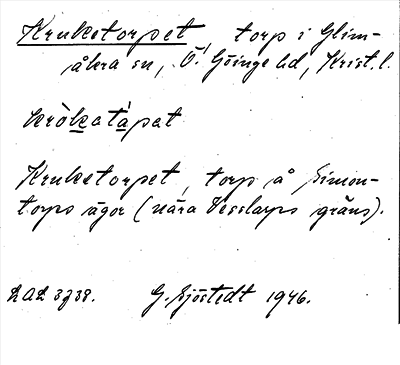 Kruketorpet, torp i Glim-
åkra sn, Ö. Göinge hd, Krist. l.
kròkatàpat
Kruketorpet, torp å Simon-
torps ägor (nära Vesslarps gräns).
LAL 3738. G. Sjöstedt 1946.